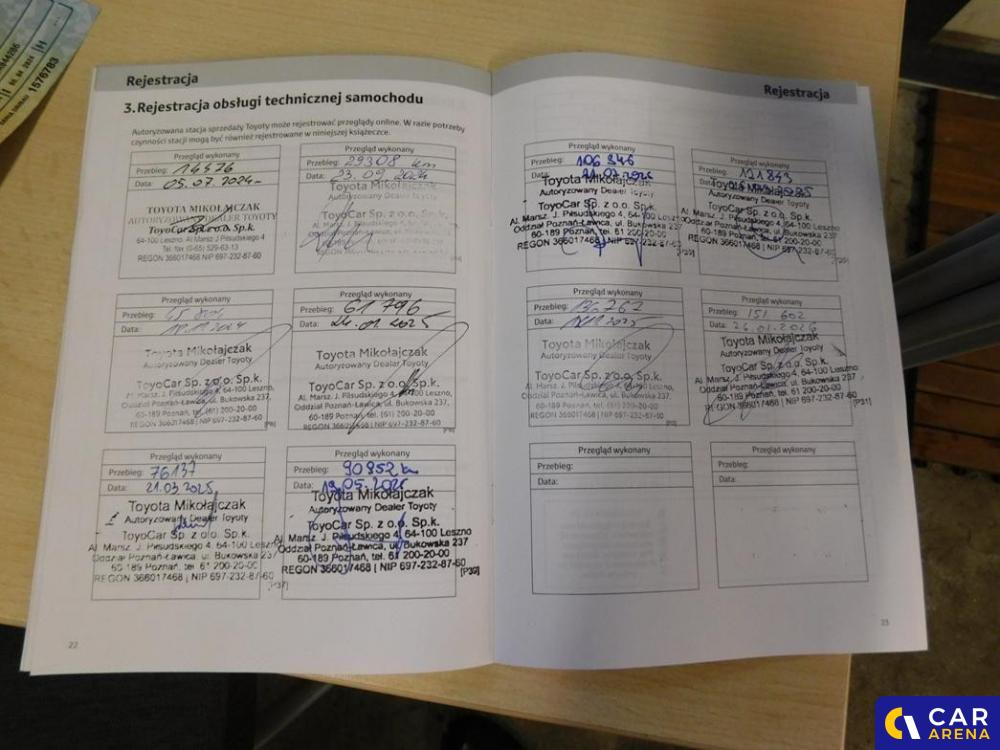 Rejestracja
3. Rejestracja obsługi technicznej samochodu
Autoryzowana stacja sprzedaży Toyoty może rejestrować przeglądy online. W razie potrzeby
czynności stacji mogą być również rejestrowane w niniejszej książeczce.
Przegląd wykonany
Przebieg: 14576
Data: 05.07.2024-
TOYOTA MIKOŁAJCZAK
AUTORYZOWANY DEALER TOYOTY
ToyoCar Sp. z o.o. Sp.k.
64-100 Leszno, Al. Marsz J. Piłsudskiego 4
Tel. fax (0-65) 529-63-13
REGON 366017468 NIP 697-232-87-60
Przegląd wykonany
Przebieg: 29308 km
Data: 23.09.2024
Toyota Mikołajczak
Autoryzowany Dealer Toyoty
ToyoCar Sp. z o.o. Sp.k.
Przegląd wykonany
Przebieg:
Data:
Toyota Mikołajczak
Autoryzowany Dealer Toyoty
ToyoCar Sp. z o.o. Sp.k.
Al. Marsz. J. Piłsudskiego 4, 64-100 Leszno,
Oddział Poznań-Ławica, ul. Bukowska 237,
60-189 Poznań, tel. (61) 200-20-00
REGON 366017468 | NIP 697-232-87-60
Przegląd wykonany
Przebieg: 61 796
Data: 24.01.2025
Toyota Mikołajczak
Autoryzowany Dealer Toyoty
ToyoCar Sp. z o.o. Sp.k.
Al. Marsz. J. Piłsudskiego 4, 64-100 Leszno,
Oddział Poznań-Ławica, ul. Bukowska 237,
60-189 Poznań, tel. (61) 200-20-00
REGON 366017468 | NIP 697-232-87-60
Przegląd wykonany
Przebieg: 76137
Data: 21.03.2025
Toyota Mikołajczak
Autoryzowany Dealer Toyoty
ToyoCar Sp. z o.o. Sp.k.
Al. Marsz. J. Piłsudskiego 4, 64-100 Leszno
Oddział Poznań-Ławica, ul. Bukowska 237
60-189 Poznań, tel. 61 200-20-00
REGON 366017468 | NIP 697-232-87-60
[P37]
Przegląd wykonany
Przebieg: 90852 km
Data: 19.05.2025
Toyota Mikołajczak
Autoryzowany Dealer Toyoty
ToyoCar Sp. z o.o. Sp.k.
Al. Marsz. J. Piłsudskiego 4, 64-100 Leszno
Oddział Poznań-Ławica, ul. Bukowska 237
60-189 Poznań, tel. 61 200-20-00
REGON 366017468 | NIP 697-232-87-60
[P39]
22
Rejestracja
Przegląd wykonany
Przebieg: 106 846
Data:
Toyota Mikołajczak
Autoryzowany Dealer Toyoty
ToyoCar Sp. z o.o. Sp.k.
Al. Marsz. J. Piłsudskiego 4, 64-100 Leszno
Oddział Poznań-Ławica, ul. Bukowska 237
60-189 Poznań, tel. 61 200-20-00
REGON 366017468 | NIP 697-232-87-60
Przegląd wykonany
Przebieg: 121843
Data:
Autoryzowany Dealer Toyoty
ToyoCar Sp. z o.o. Sp.k.
Al. Marsz. J. Piłsudskiego 4, 64-100 Leszno
Oddział Poznań-Ławica, ul. Bukowska 237
60-189 Poznań, tel. 61 200-20-00
REGON 366017468 | NIP 697-232-87-60
Przegląd wykonany
Przebieg: 136 762
Data:
Toyota Mikołajczak
Autoryzowany Dealer Toyoty
ToyoCar Sp. z o.o. Sp.k.
Al. Marsz. J. Piłsudskiego 4, 64-100 Leszno,
Oddział Poznań-Ławica, ul. Bukowska 237,
60-189 Poznań, tel. (61) 200-20-00
REGON 366017468 | NIP 697-232-87-60
Przegląd wykonany
Przebieg: 151 602
Data: 26.01.2026
Toyota Mikołajczak
Autoryzowany Dealer Toyoty
ToyoCar Sp. z o.o. Sp.k.
Al. Marsz. J. Piłsudskiego 4, 64-100 Leszno
Oddział Poznań-Ławica, ul. Bukowska 237
60-189 Poznań, tel. 61 200-20-00
REGON 366017468 | NIP 697-232-87-60
[P31]
Przegląd wykonany
Przebieg:
Data:
Przegląd wykonany
Przebieg:
Data:
23
1576783
CAR
ARENA